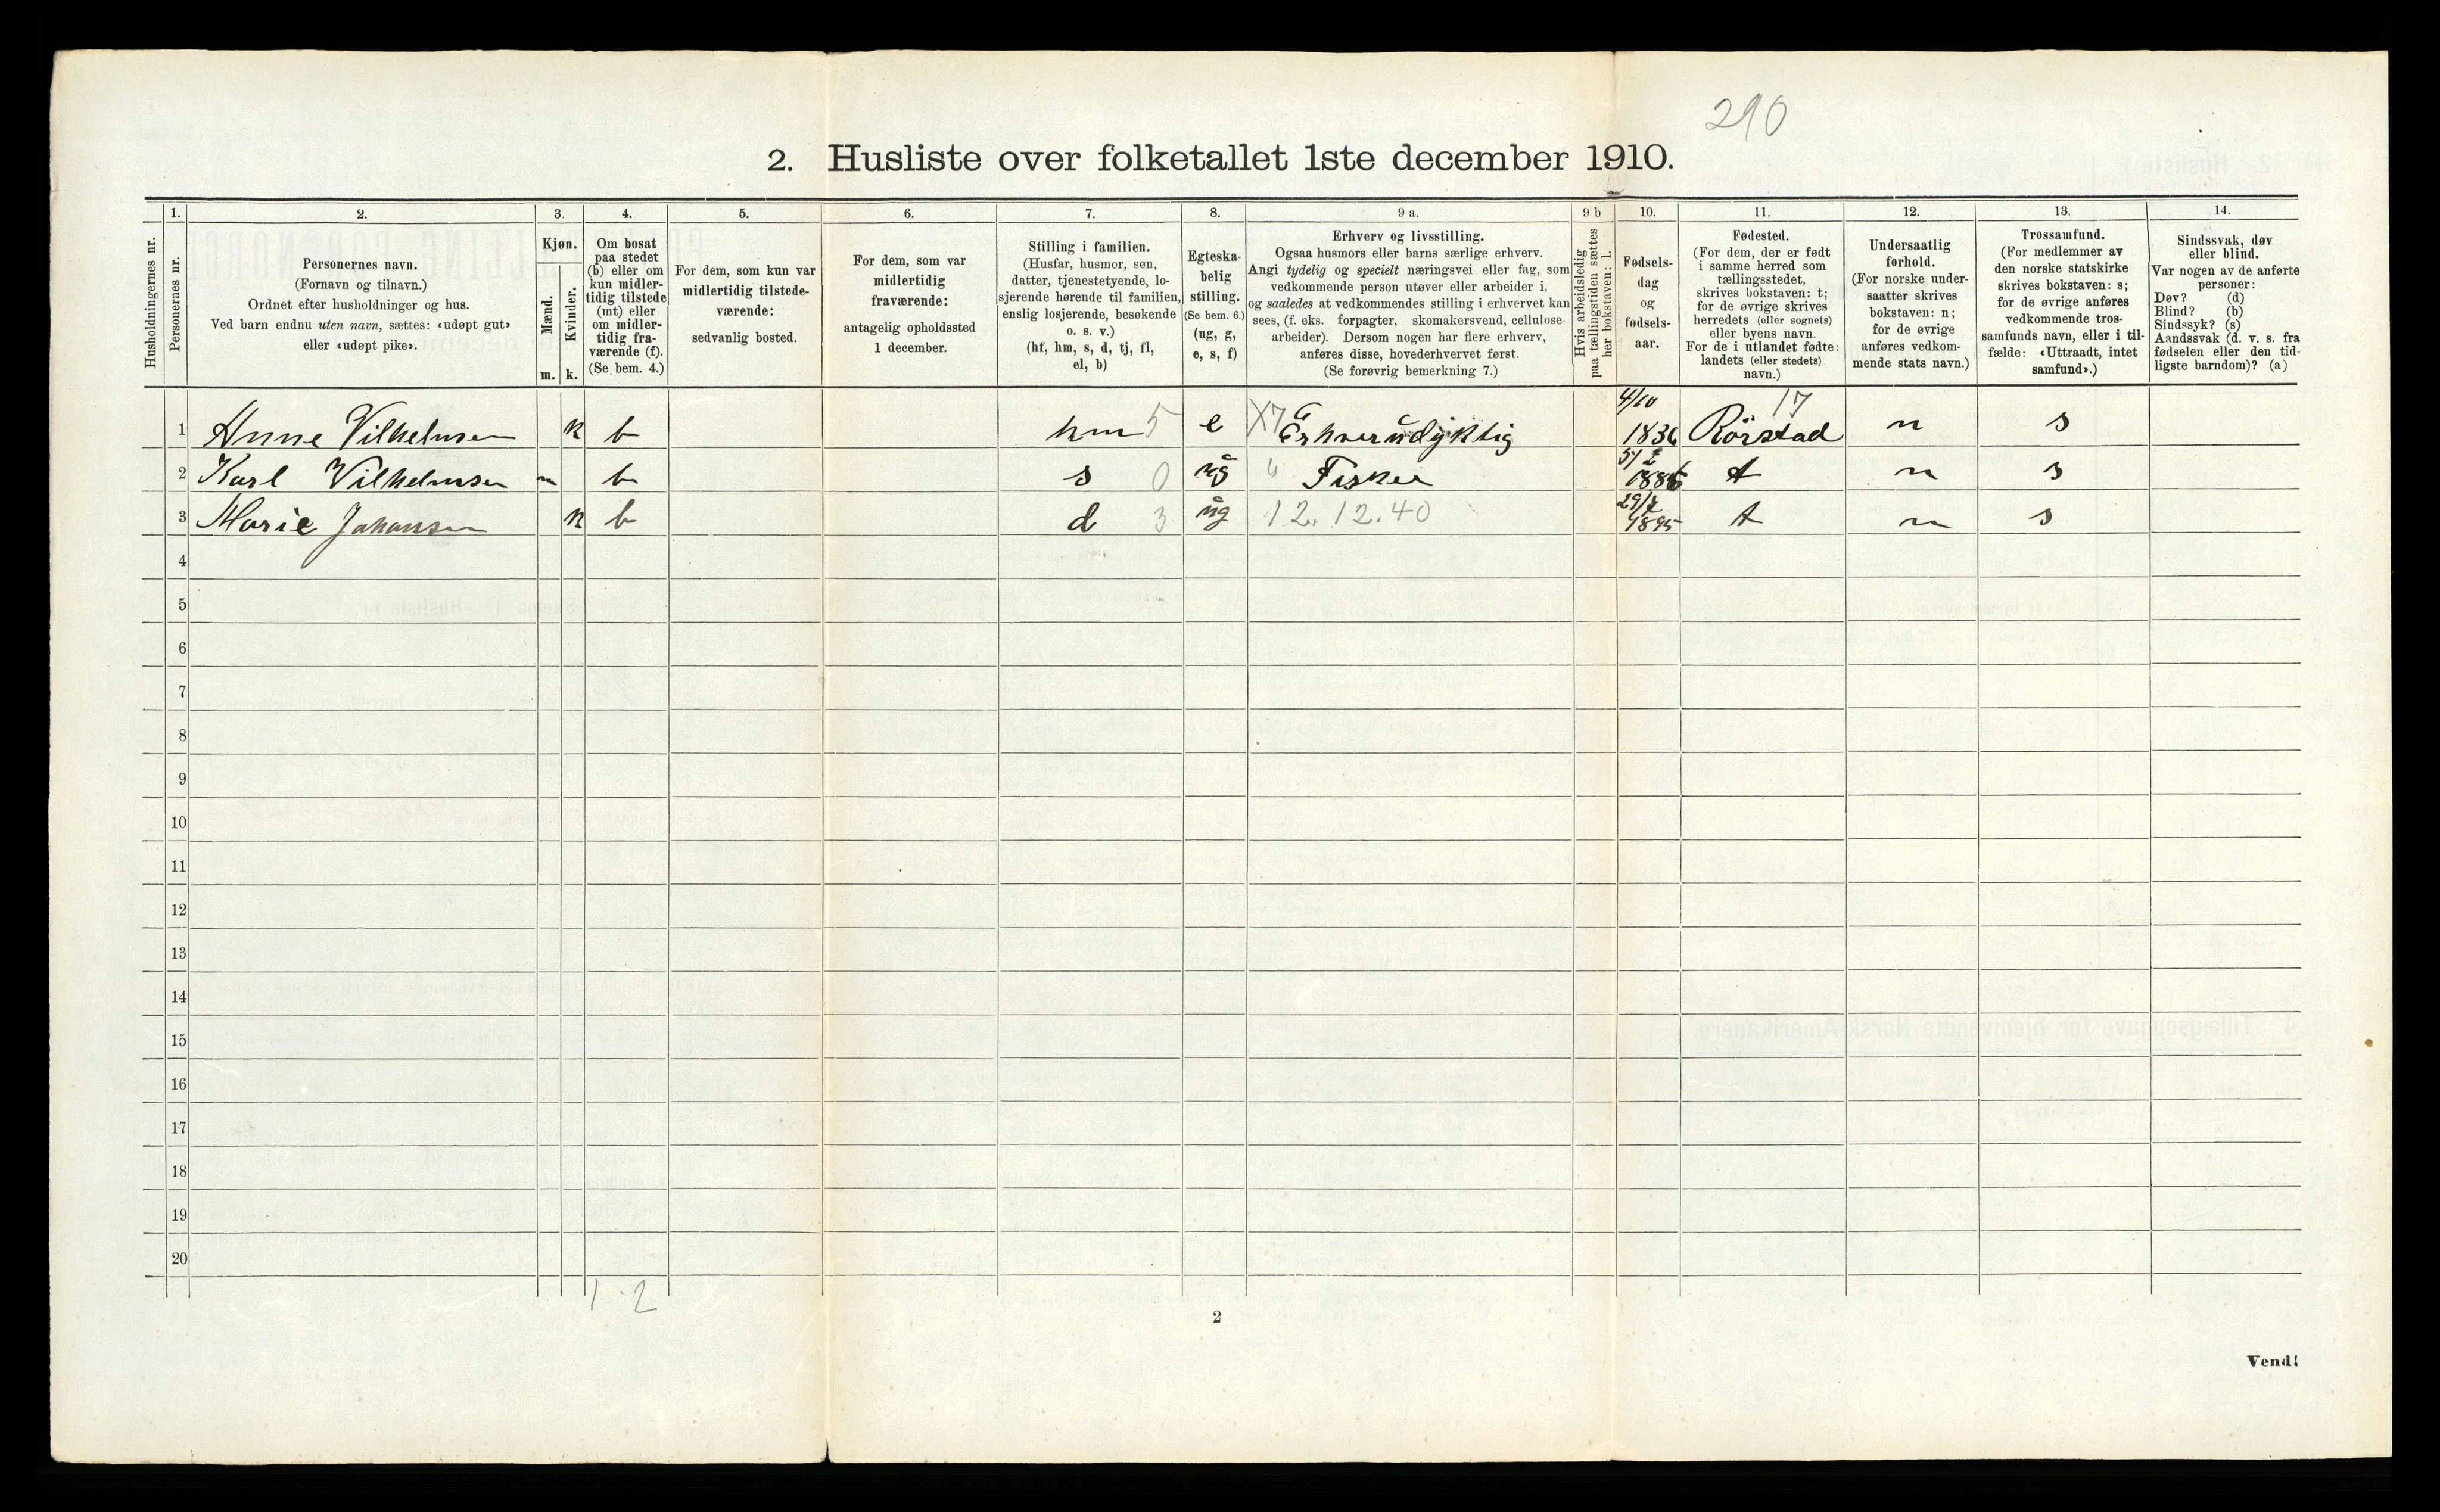 290
2. Husliste over folketallet 1ste december 1910.
Husholdningernes nr.
1.
Personernes nr.
2.
Personernes navn.
(Fornavn og tilnavn.)
Ordnet efter husholdninger og hus.
Ved barn endnu uten navn, sættes: «udøpt gut»
eller «udøpt pike».
3.
Kjøn.
Mænd.
Kvinder.
m. k.
4.
Om bosat
paa stedet
(b) eller om
kun midler-
tidig tilstede
(mt) eller
om midler-
tidig fra-
værende (f).
(Se bem. 4.)
5.
For dem, som kun var
midlertidig tilstede-
værende:
sedvanlig bosted.
6.
For dem, som var
midlertidig
fraværende:
antagelig opholdssted
1 december.
7.
Stilling i familien.
(Husfar, husmor, søn,
datter, tjenestetyende, lo-
sjerende hørende til familien,
enslig losjerende, besøkende
o. s. v.)
(hf, hm, s, d, tj, fl,
el, b)
8.
Egteska-
belig
stilling.
(Se bem. 6.)
(ug, g,
e, s, f)
9 a.
Erhverv og livsstilling.
Ogsaa husmors eller barns særlige erhverv.
Angi tydelig og specielt næringsvei eller fag, som
vedkommende person utøver eller arbeider i,
og saaledes at vedkommendes stilling i erhvervet kan
sees, (f. eks. forpagter, skomakersvend, cellulose-
arbeider). Dersom nogen har flere erhverv,
anføres disse, hovederhvervet først.
(Se forøvrig bemerkning 7.)
9 b
Hvis arbeidsledig
paa tællingstiden sættes
her bokstaven: l.
10.
Fødsels-
dag
og
fødsels-
aar.
11.
Fødested.
(For dem, der er født
i samme herred som
tællingsstedet,
skrives bokstaven: t;
for de øvrige skrives
herredets (eller sognets)
eller byens navn.
For de i utlandet fødte:
landets (eller stedets)
navn.)
12.
Undersaatlig
forhold.
(For norske under-
saatter skrives
bokstaven: n;
for de øvrige
anføres vedkom-
mende stats navn.)
13.
Trossamfund.
(For medlemmer av
den norske statskirke
skrives bokstaven: s;
for de øvrige anføres
vedkommende tros-
samfunds navn, eller i til-
fælde: «Uttraadt, intet
samfund».)
14.
Sindssvak, døv
eller blind.
Var nogen av de anførte
personer:
Døv? (d)
Blind? (b)
Sindssyk? (s)
Aandssvak (d. v. s. fra
fødselen eller den tid-
ligste barndom)? (a)
4/10 17
1 Anne Vilhelmsen k b hm 5 e X7 Erhverudyktig 1836 Rörstad n s
2 Karl Vilhelmsen m b s 0 ug " Fisker t n s
3 Marie Johansen k b d 3 ug 12.12.40 1895 t n s
4
5
6
7
8
9
10
11
12
13
14
15
16
17
18
19
20
1 2
2
Vend!